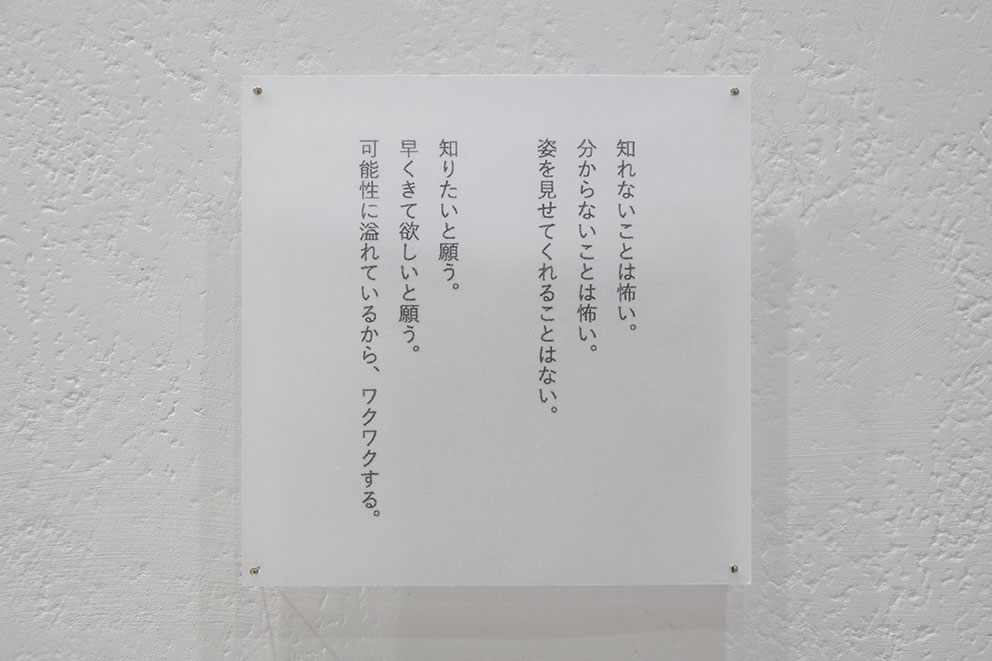 知れないことは怖い。
分からないことは怖い。
姿を見せてくれることはない。
知りたいと願う。
早くきて欲しいと願う。
可能性に溢れているから、ワクワクする。